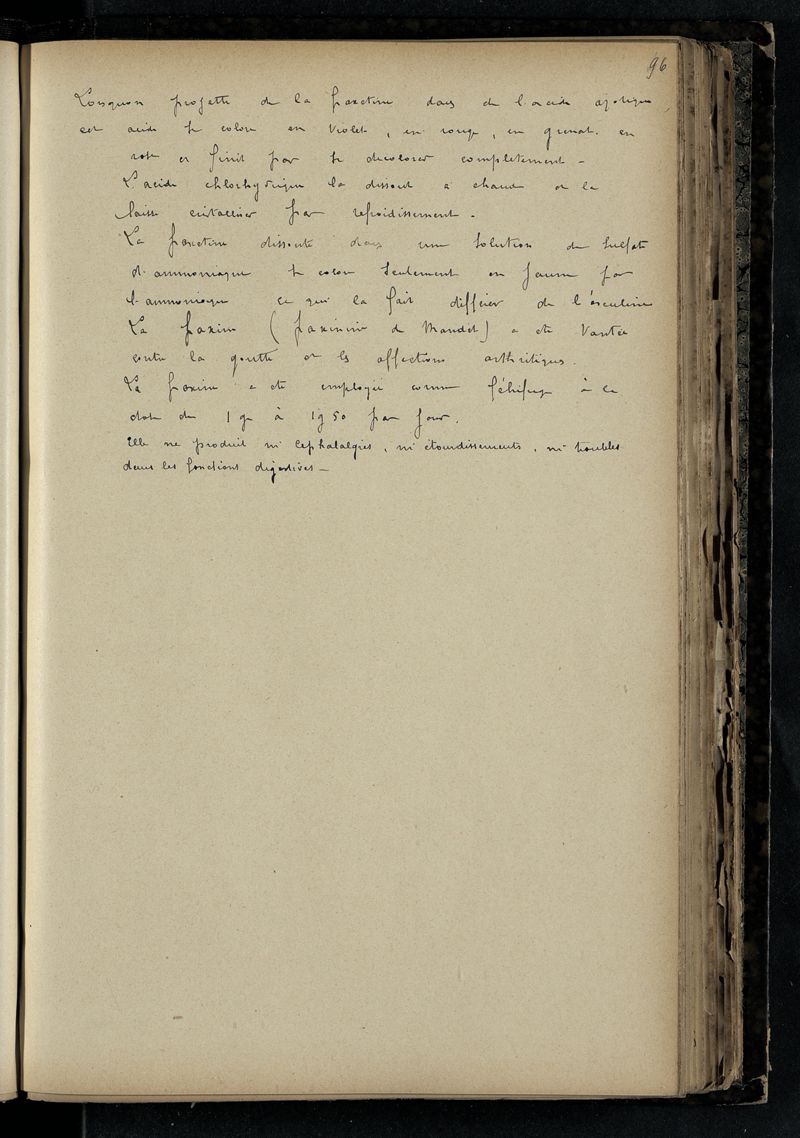 96
Lorsqu'on projette de la fraxetine dans de l'acide azotique
cet acide se colore en violet, en rouge, en grenat, en
rose et finit par se decolorer completement -
L'acide chlorhydrique la dissout à chaud et la
laisse cristalliser par refroidissement -
La fraxetine dissoute dans une solution de sulfate
d'ammoniaque se colore seulement en jaune par
l'ammoniaque ce qui la fait différer de l'esculetine
La fraxine (fraxinine de Mandet) a été vantée
contre la goutte et les affections arthritiques.
La fraxine a été employée comme fébrifuge à la
dose de 1 g à 1g 50 par jour.
Elle ne produit ni cephalalgies, ni étourdissements, ni troubles
dans les fonctions digestives -